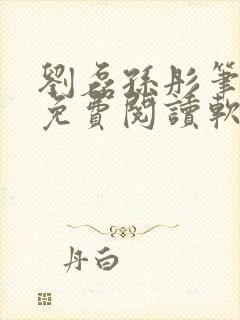 劉磊孫彤筆
免費閱讀軟
丹白